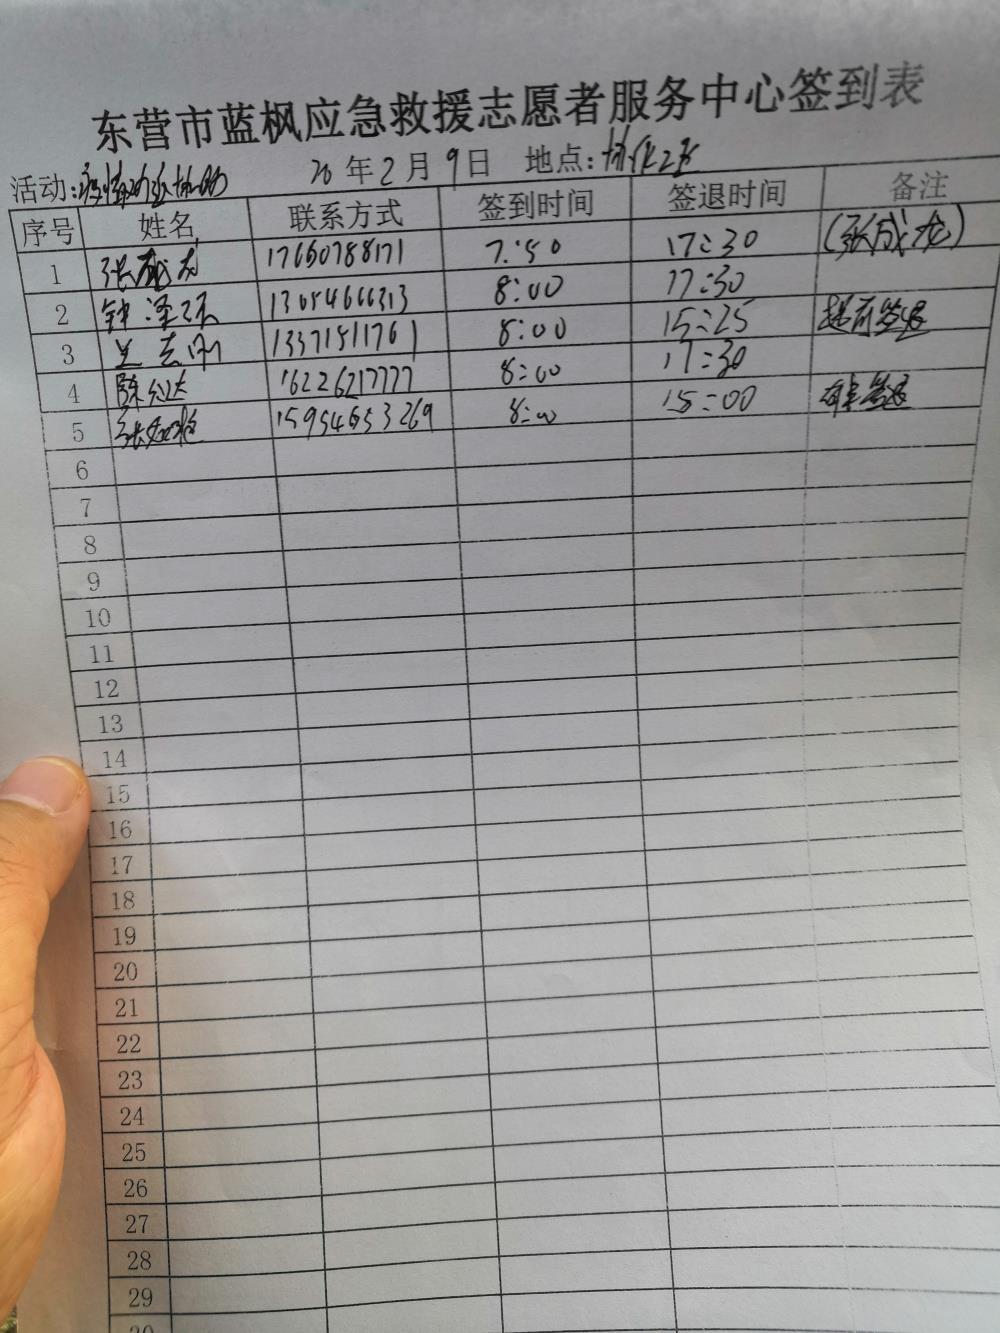 东营市蓝枫应急救援志愿者服务中心签到表
活动: 疫情防控协助 20年2月9日 地点:
序号 姓名 联系方式 签到时间 签退时间 备注
1 张成龙 17660788171 7:50 17:30 (张成龙)
2 钟泽 13054666313 8:00 17:30
3 兰志刚 13371511761 8:00 15:25 提前签退
4 陈 达 16226217777 8:00 17:30
5 张 15954653269 8:00 15:00 签退
6
7
8
9
10
11
12
13
14
15
16
17
18
19
20
21
22
23
24
25
26
27
28
29
30